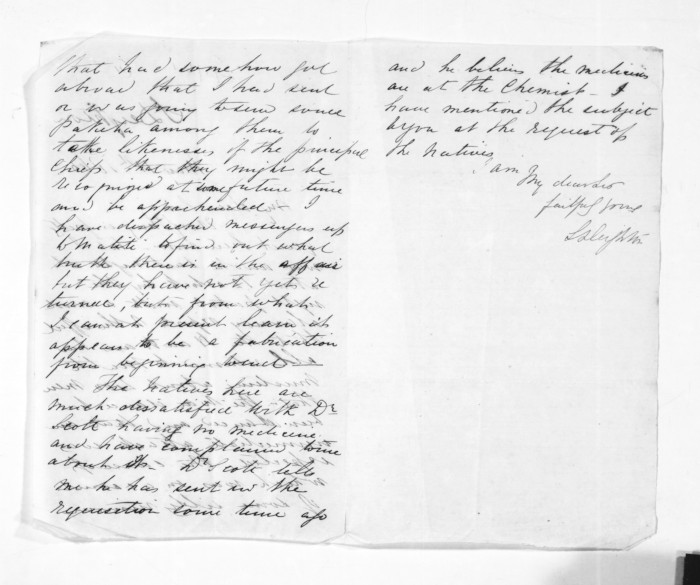 that had somehow got
abroad that I had sent
or was going to send some
Pakeha among them to
take likenesses of the principal
Chiefs that they might be
recognized at some future time
and be apprehended - I
have despatched messengers up
to find out what
truth there is in the affair
but they have not yet re
turned, but from what
I can at present learn it
appears to be a fabrication
from beginning to end -
The Natives here are
much dissatisfied with Dr
Scott having no medicine
and have complained to me
about it - Dr Scott tells
me he has sent in the
requisition some time ago
and he believes the medicines
are at the Chemist - I
have mentioned the subject
to you at the request of
the Natives
I am My dear Sir
faithfully yours